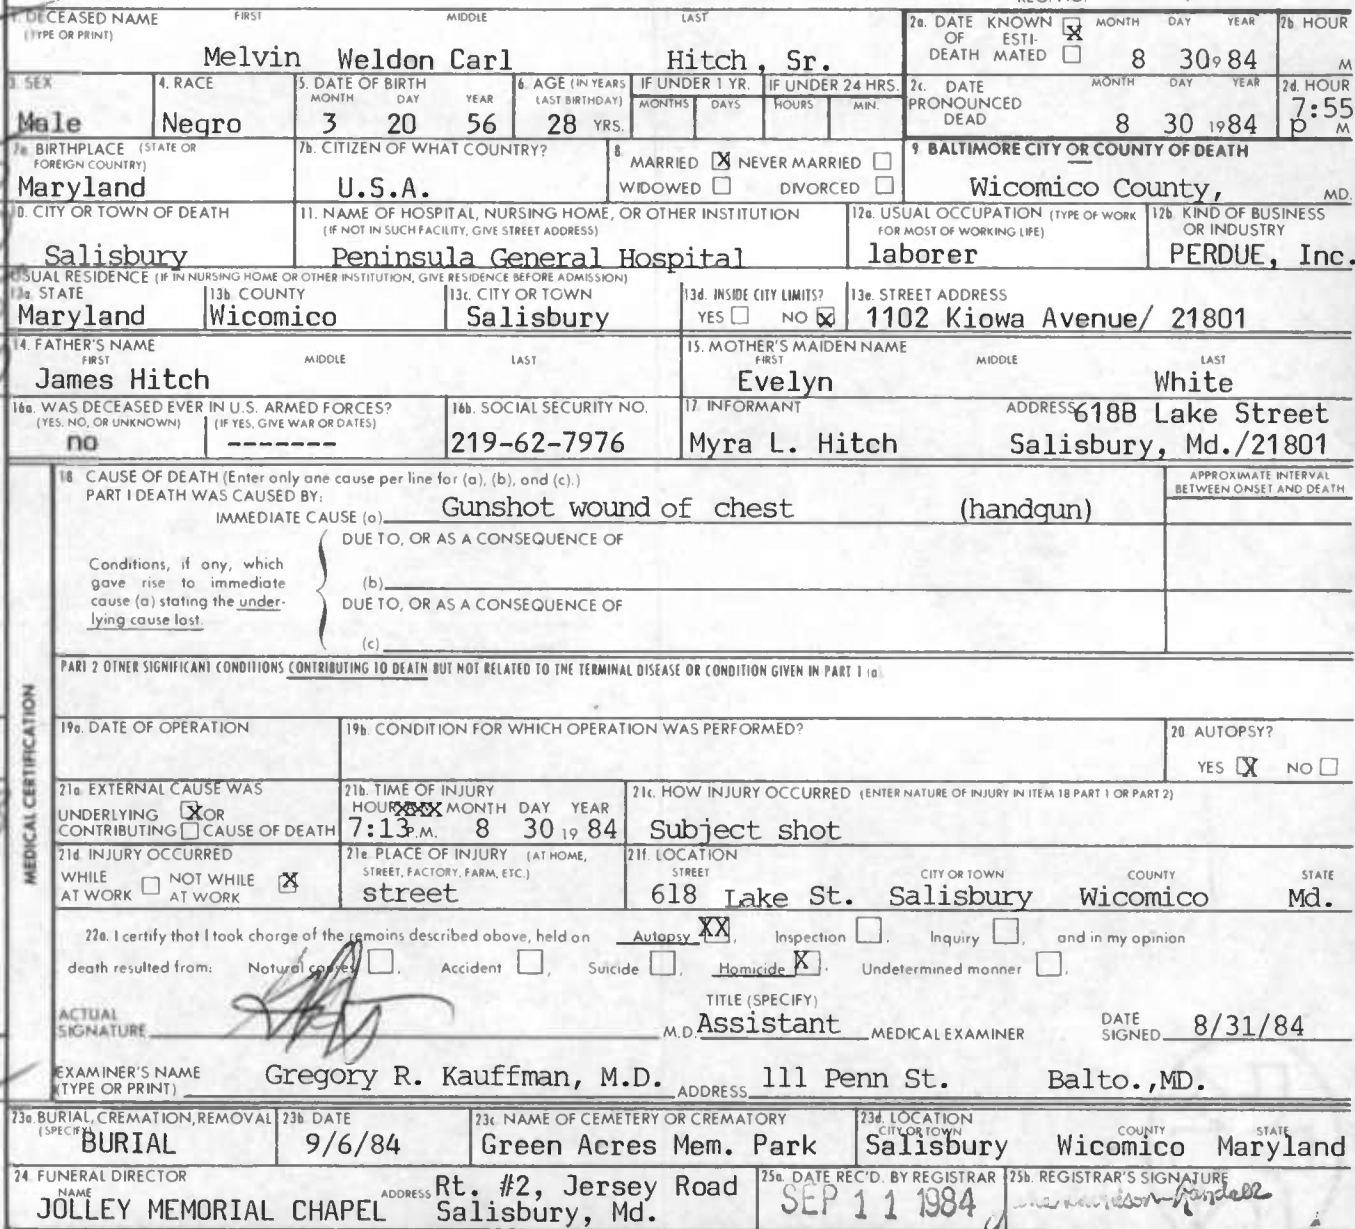 1. DECEASED NAME FIRST MIDDLE LAST
(TYPE OR PRINT)
Melvin Weldon Carl Hitch, Sr.
2a. DATE KNOWN X MONTH DAY YEAR
OF ESTI-
DEATH MATED
8 30 9 84
2b. HOUR
M
3. SEX
Male
4. RACE
Negro
5. DATE OF BIRTH
MONTH DAY YEAR
3 20 56
6. AGE (IN YEARS
LAST BIRTHDAY)
28 YRS.
IF UNDER 1 YR.
MONTHS DAYS
IF UNDER 24 HRS.
HOURS MIN.
2c. DATE MONTH DAY YEAR
PRONOUNCED
DEAD
8 30 1984
2d. HOUR
7:55
P M
7a. BIRTHPLACE (STATE OR
FOREIGN COUNTRY)
Maryland
7b. CITIZEN OF WHAT COUNTRY?
U.S.A.
8.
MARRIED X NEVER MARRIED
WIDOWED DIVORCED
9. BALTIMORE CITY OR COUNTY OF DEATH
Wicomico County, MD.
10. CITY OR TOWN OF DEATH
Salisbury
11. NAME OF HOSPITAL, NURSING HOME, OR OTHER INSTITUTION
(IF NOT IN SUCH FACILITY, GIVE STREET ADDRESS)
Peninsula General Hospital
12a. USUAL OCCUPATION (TYPE OF WORK
FOR MOST OF WORKING LIFE)
laborer
12b. KIND OF BUSINESS
OR INDUSTRY
PERDUE, Inc.
USUAL RESIDENCE (IF IN NURSING HOME OR OTHER INSTITUTION, GIVE RESIDENCE BEFORE ADMISSION)
13a. STATE
Maryland
13b. COUNTY
Wicomico
13c. CITY OR TOWN
Salisbury
13d. INSIDE CITY LIMITS?
YES NO X
13e. STREET ADDRESS
1102 Kiowa Avenue/ 21801
14. FATHER'S NAME
FIRST MIDDLE LAST
James Hitch
15. MOTHER'S MAIDEN NAME
FIRST MIDDLE LAST
Evelyn White
16a. WAS DECEASED EVER IN U.S. ARMED FORCES?
(YES, NO, OR UNKNOWN) (IF YES, GIVE WAR OR DATES)
no -------
16b. SOCIAL SECURITY NO.
219-62-7976
17. INFORMANT
Myra L. Hitch
ADDRESS 618B Lake Street
Salisbury, Md./21801
MEDICAL CERTIFICATION
18. CAUSE OF DEATH (Enter only one cause per line for (a), (b), and (c).)
PART I DEATH WAS CAUSED BY:
IMMEDIATE CAUSE (a) Gunshot wound of chest (handgun)
APPROXIMATE INTERVAL
BETWEEN ONSET AND DEATH
DUE TO, OR AS A CONSEQUENCE OF
Conditions, if any, which
gave rise to immediate
cause (a) stating the under-
lying cause last.
(b)
DUE TO, OR AS A CONSEQUENCE OF
(c)
PART 2 OTHER SIGNIFICANT CONDITIONS CONTRIBUTING TO DEATH BUT NOT RELATED TO THE TERMINAL DISEASE OR CONDITION GIVEN IN PART 1 (a)
19a. DATE OF OPERATION
19b. CONDITION FOR WHICH OPERATION WAS PERFORMED?
20. AUTOPSY?
YES X NO
21a. EXTERNAL CAUSE WAS
UNDERLYING X OR
CONTRIBUTING CAUSE OF DEATH
21b. TIME OF INJURY
HOUR XXXX MONTH DAY YEAR
7:13 P.M. 8 30 19 84
21c. HOW INJURY OCCURRED (ENTER NATURE OF INJURY IN ITEM 18 PART 1 OR PART 2)
Subject shot
21d. INJURY OCCURRED
WHILE AT WORK NOT WHILE AT WORK X
21e. PLACE OF INJURY (AT HOME,
STREET, FACTORY, FARM, ETC.)
street
21f. LOCATION
STREET CITY OR TOWN COUNTY STATE
618 Lake St. Salisbury Wicomico Md.
22a. I certify that I took charge of the remains described above, held on Autopsy XX, Inspection, Inquiry, and in my opinion
death resulted from: Natural causes, Accident, Suicide, Homicide X, Undetermined manner.
ACTUAL
SIGNATURE M.D.
TITLE (SPECIFY)
Assistant MEDICAL EXAMINER
DATE
SIGNED 8/31/84
EXAMINER'S NAME
(TYPE OR PRINT) Gregory R. Kauffman, M.D. ADDRESS 111 Penn St. Balto.,MD.
23a. BURIAL, CREMATION, REMOVAL
(SPECIFY)
BURIAL
23b. DATE
9/6/84
23c. NAME OF CEMETERY OR CREMATORY
Green Acres Mem. Park
23d. LOCATION
CITY OR TOWN COUNTY STATE
Salisbury Wicomico Maryland
24. FUNERAL DIRECTOR
NAME
JOLLEY MEMORIAL CHAPEL
ADDRESS Rt. #2, Jersey Road
Salisbury, Md.
25a. DATE REC'D. BY REGISTRAR
SEP 11 1984
25b. REGISTRAR'S SIGNATURE